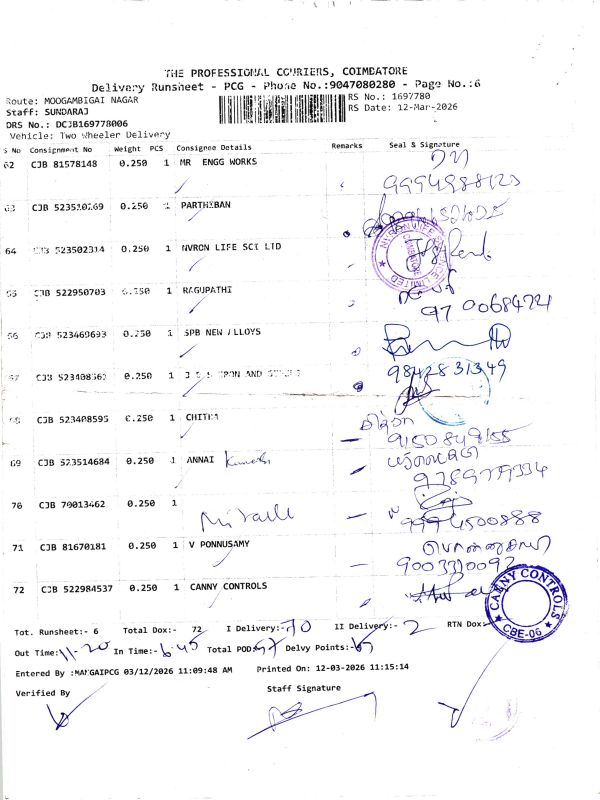 THE PROFESSIONAL COURIERS, COIMBATORE
Delivery Runsheet - PCG - Phone No.:9047080280 - Page No.:6
Route: MOOGAMBIGAI NAGAR
RS No.: 1697780
Staff: SUNDARAJ
RS Date: 12-Mar-2026
DRS No.: DCJB169778006
Vehicle: Two Wheeler Delivery
S No Consignment No Weight PCS Consignee Details Remarks Seal & Signature
62 CJB 81578148 0.250 1 MR ENGG WORKS
9994988123
63 CJB 0.250 1 PARTHIBAN
64 CJB 523502314 0.250 1 NVRON LIFE SCI LTD
65 CJB 522950703 0.250 1 RAGUPATHI
97 0068421
66 CJB 523469693 0.250 1 SPB NEW ALLOYS
67 CJB 523408562 0.250 1 IRON AND
9842831349
68 CJB 523408595 0.250 1 CHITRA
சித்ரா
9150849155
69 CJB 523514684 0.250 1 ANNAI
9789779334
70 CJB 70013462 0.250 1 Miracle
9994500888
71 CJB 81670181 0.250 1 V PONNUSAMY
பொன்னுசாமி
9003310092
72 CJB 522984537 0.250 1 CANNY CONTROLS
CANNY CONTROLS
CBE-06
Tot. Runsheet:- 6 Total Dox:- 72 I Delivery:- 70 II Delivery:- 2 RTN Dox:-
Out Time: 11-20 In Time:- 6-45 Total POD: 97 Delvy Points:- 65
Entered By :MANGAIPCG 03/12/2026 11:09:48 AM Printed On: 12-03-2026 11:15:14
Verified By Staff Signature